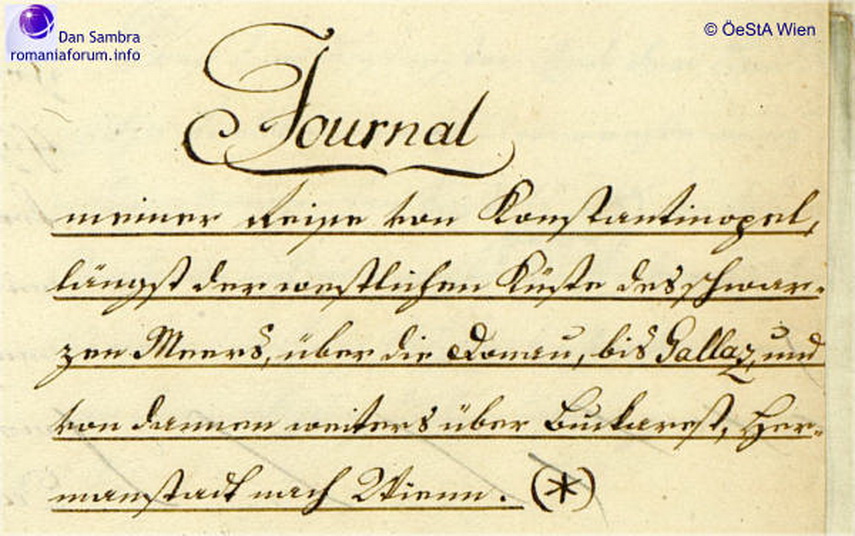 Dan Sambra
romaniaforum.info
© ÖeStA Wien
Journal
meiner Reise von Konstantinopel,
längst der westlichen Küste des schwar-
zen Meers, über die Donau, bis Gallaz, und
von dannen weiters über Bukarest, Her-
manstadt nach Wienn. (*)